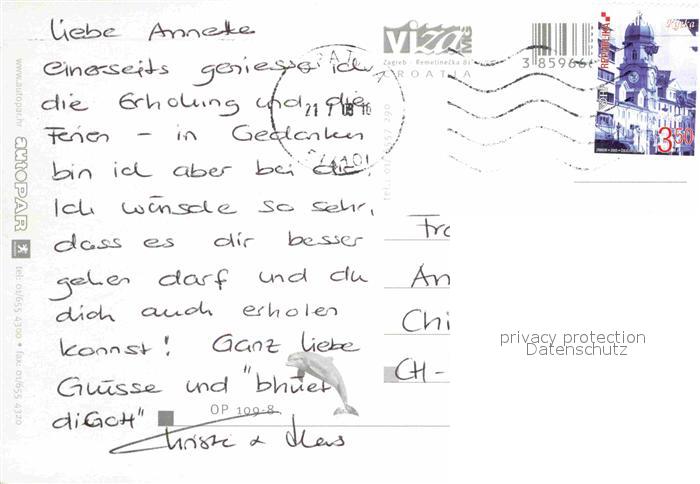 liebe Anneke
einerseits geniesse ich
die Erholung und die
Ferien – in Gedanken
bin ich aber bei dir.
Ich wünsche so sehr,
dass es dir besser
gehen darf und du
dich auch erholen
kannst! Ganz liebe
Grüsse und "bhüet
di Gott"
Christa +
www.autopar.hr
AUTOPAR
tel: 01/655 4300 • fax: 01/655 4320
OP 109-8
Viza MG
Zagreb - Remetinečka 81
CROATIA
3 85966
21 7 03
REPUBLIKA
Rijeka
3.50
Fra
An
Chi
CH-
privacy protection
Datenschutz